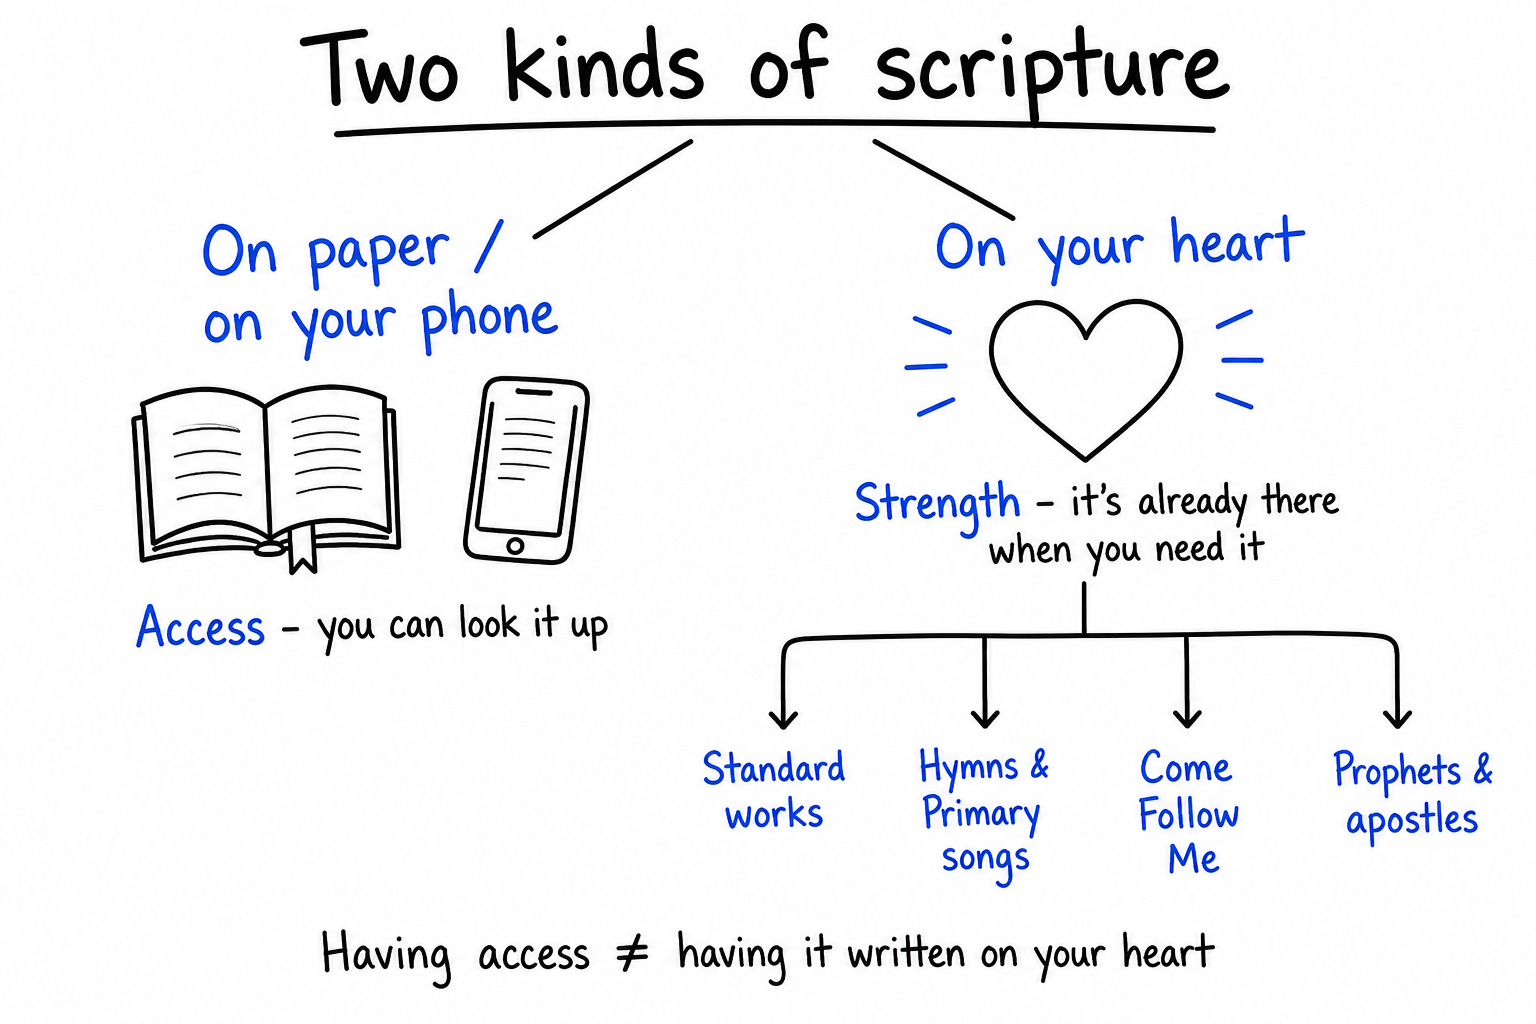 Two kinds of scripture
On paper /
on your phone
Access – you can look it up
On your heart
Strength – it's already there
when you need it
Standard
works
Hymns &
Primary
songs
Come
Follow
Me
Prophets &
apostles
Having access ≠ having it written on your heart